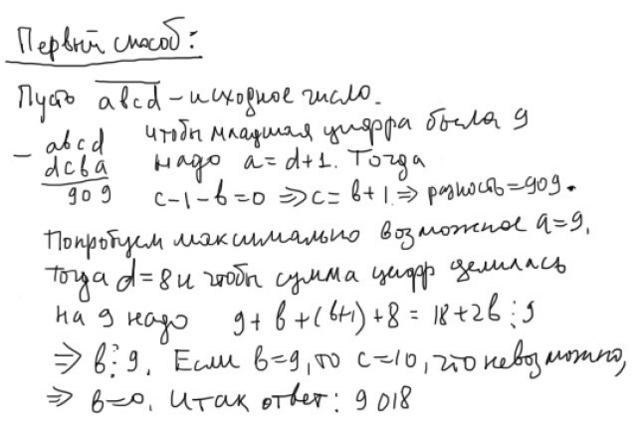 Первый способ:
Пусть abcd – исходное число.
– abcd чтобы младшая цифра была 9
dcba надо a = d+1. Тогда
909 c-1-b=0 ⇒ c = b+1 ⇒ разность = 909.
Попробуем максимально возможное a=9,
тогда d=8 и чтобы сумма цифр делилась
на 9 надо 9 + b + (b+1) + 8 = 18+2b ⋮ 9
⇒ b ⋮ 9. Если b=9, то c=10, что невозможно,
⇒ b=0. Итак ответ: 9018